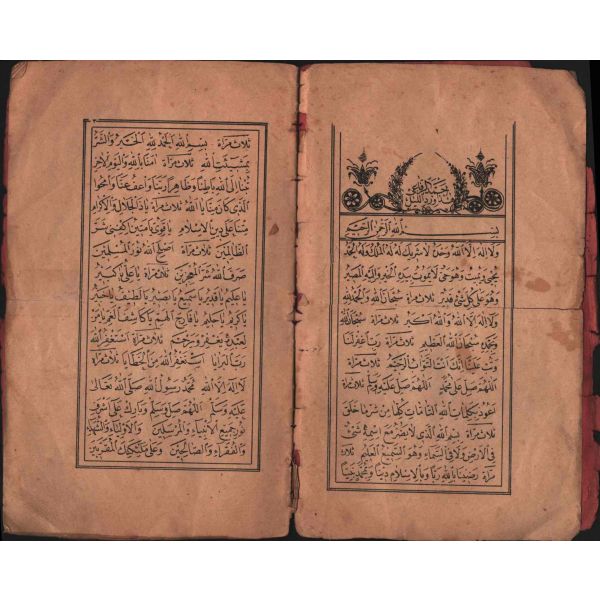 بسم الله الرحمن الرحيم
ولا اله الا الله وحده لا شريك له له الملك وله الحمد
يحيى ويميت وهو حى لا يموت بيده الخير واليه المصير
وهو على كل شئ قدير ثلاث مراة سبحان الله والحمد لله
ولا اله الا الله والله اكبر ثلاث مراة سبحان الله
وبحمده سبحان الله العظيم ثلاث مراة ربنا اغفرلنا
وتب علينا انك انت التواب الرحيم ثلاث مراة
اللهم صل على محمد اللهم صل عليه وسلم ثلاث مراة
اعوذ بكلمات الله التامات كلها من شر ما خلق
ثلاث مراة بسم الله الذى لا يضر مع اسمه شئ
فى الارض ولا فى السماء وهو السميع العليم ثلاث
مراة رضينا بالله ربا وبالاسلام دينا وبمحمد نبيا
ثلاث مراة بسم الله الحمد لله الخير والشر
بمشيئت الله ثلاث مراة امنا بالله واليوم الاخر
تبنا الى الله باطنا وظاهرا ربنا واعف عنا وامحوا
الذى كان منا يا الله ثلاث مراة ياذا الجلال والاكرام
متنا على دين الاسلام يا قوى يا متين اكفى شر
الظالمين ثلاث مراة اصلح الله امور المسلمين
صرف الله شر المؤذين ثلاث مراة يا على يا كبير
يا عليم يا قدير يا سميع يا بصير يا لطيف يا خبير
يا كريم يا حليم يا فارج الهم يا كاشف الغم يا من
لعبده يغفر ويرحم ثلاث مراة استغفر الله
رب البرايا استغفر الله من الخطايا ثلاث مراة
لا اله الا الله محمد رسول الله صلى الله تعالى
عليه وسلم اللهم صل وسلم وبارك على اشرف
نور جميع الانبياء والمرسلين والاولياء والشهداء
والفقراء والصالحين وعلى ملائكتك المقربين